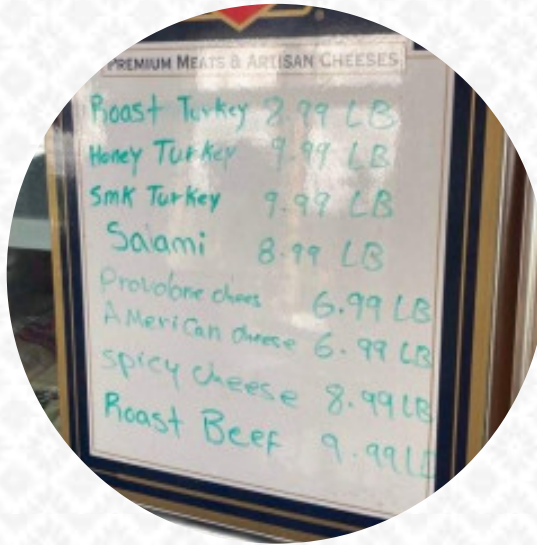 PREMIUM MEATS & ARTISAN CHEESES
Roast Turkey 8.99 LB
Honey Turkey 9.99 LB
SmK Turkey 9.99 LB
Salami 8.99 LB
Provolone chees 6.99 LB
AMeriCan cheese 6.99 LB
spicy cheese 8.99 LB
Roast Beef 9.99 LB